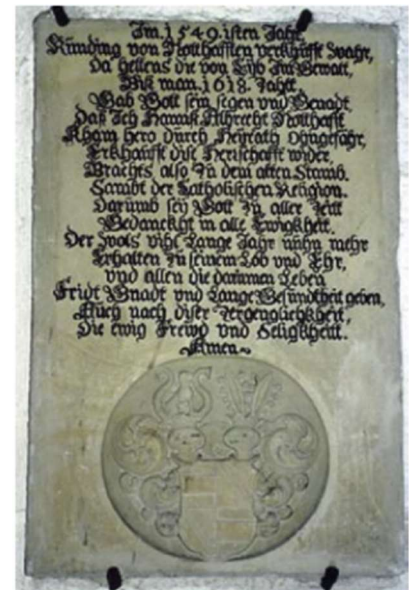 Im 1549.isten Jahr,
Ründing von Notthafften verkhaufft wahr,
Da hettens die von Eyb Im Gewalt,
Biß man.1618.Zahlt
Gab Gott sein segen und Genadt.
Daß Ich Hannß Albrecht Notthafft
Kham hero durch Heyrath Ohngefahr,
Erkhaufft dise Herrschafft wider,
Brachts also Zu dem alten Stamb.
Sambt der Catholischen Religion.
Darumb sey Gott Zu aller Zeitt
Gedanckht in alle Ewigkheit.
Der Wols vihl Lange Jahr nuhn mehr
Erhalten Zu seinem Lob und Ehr,
und allen die darinnen Leben
Fridt Gnadt und Lange Gesundtheit geben,
Auch nach diser Zergenglichkheit,
Die ewig Frewd und Seligkheitt.
Amen